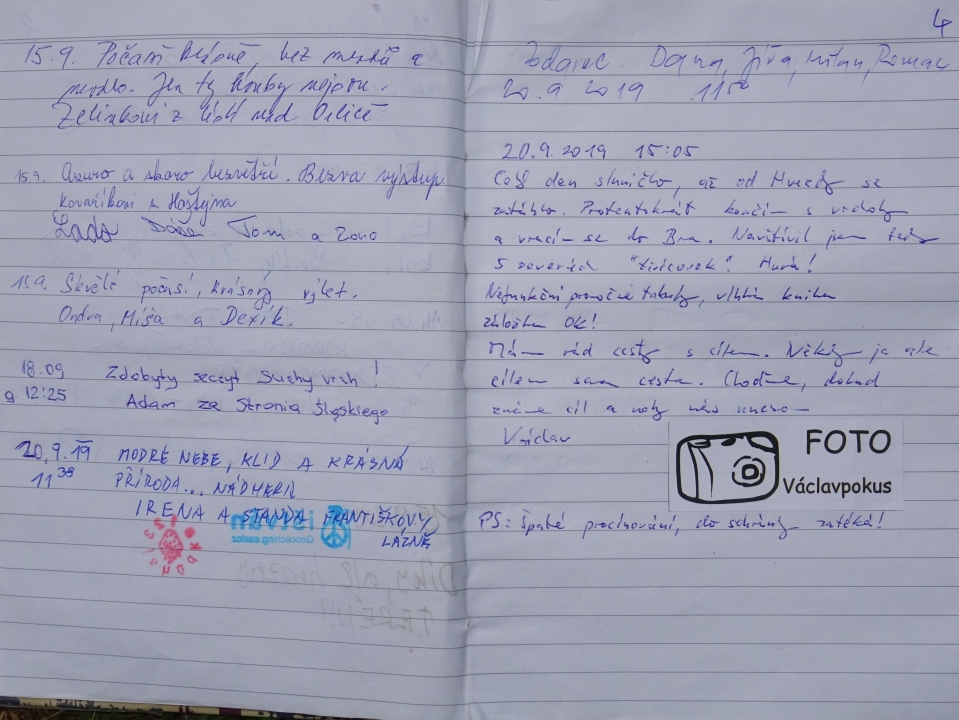 15.9. Počasí bez mráčků a
nevedlo. Jen ty houby nejsou.
Zelinkovi z Ústí nad Orlicí
15.9. Azuro a skoro bezvětří. Bezva výstup.
Kovaříkovi z Hoštejna
Lada Dáša Tom a
15.9. Skvělé počasí, krásný výlet.
Ondra, Míša a Dexík.
18.09 Zdobyty szczyt Suchy vrch!
g. 12:25 Adam ze Stronia Śląskiego
20.9.19 MODRÉ NEBE, KLID A KRÁSNÁ
11 38 PŘÍRODA... NÁDHERA
IRENA A STANDA FRANTIŠKOVY
LÁZNĚ
4
Žďárec Dana, Jiřa, Milan, Roman
20.9 2019 11 50
20.9.2019 15:05
Celý den sluníčko, až od Hvězdy se
zatáhlo. Protentokrát končím s vrcholy
a vracím se do Brna. Navštívil jsem tedy
5 severních "tisícovek"! Hurá!
Nefunkční propisky, vlhká kniha
záložka OK!
Mám rád cesty s cílem. Někdy je ale
cílem sama cesta. Choďme, dokud
známe cíl a nohy nás unesou
Václav
FOTO
Václavpokus
PS: Špatné, do schránky zatéká!